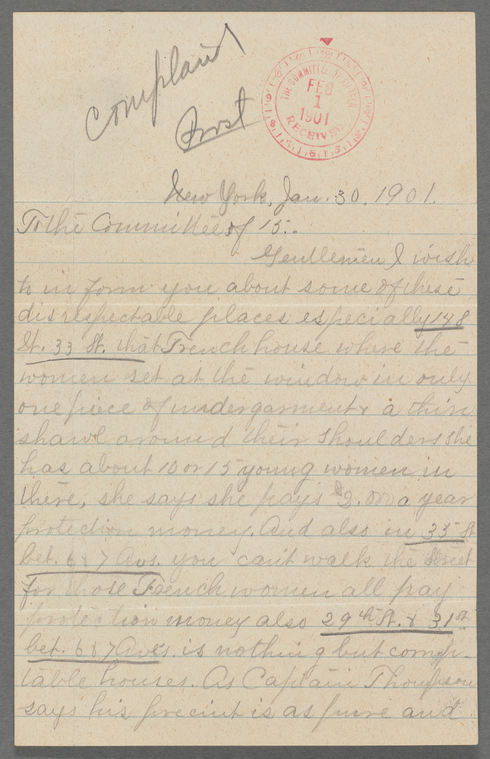 Complaint
Prost
THE COMMITTEE OF FIFTEEN
FEB
1
1901
RECEIVED
New York, Jan. 30, 1901.
To the Committee of 15.
Gentlemen I wish
to inform you about some of these
disrespectable places especially 148
St. 33 St. that French house where the
women set at the window in only
one piece of undergarment & a thin
shawl around their shoulders she
has about 10 or 15 young women in
there, she says she pays a year
protection money. And also in 35 St
bet. 6 & 7 Avs. you can't walk the street
for those French women all pay
protection money also 29th St. & 31st
bet. 6 & 7 Aves is nothing but
table houses. As Captain Thompson
says his precint is as pure and